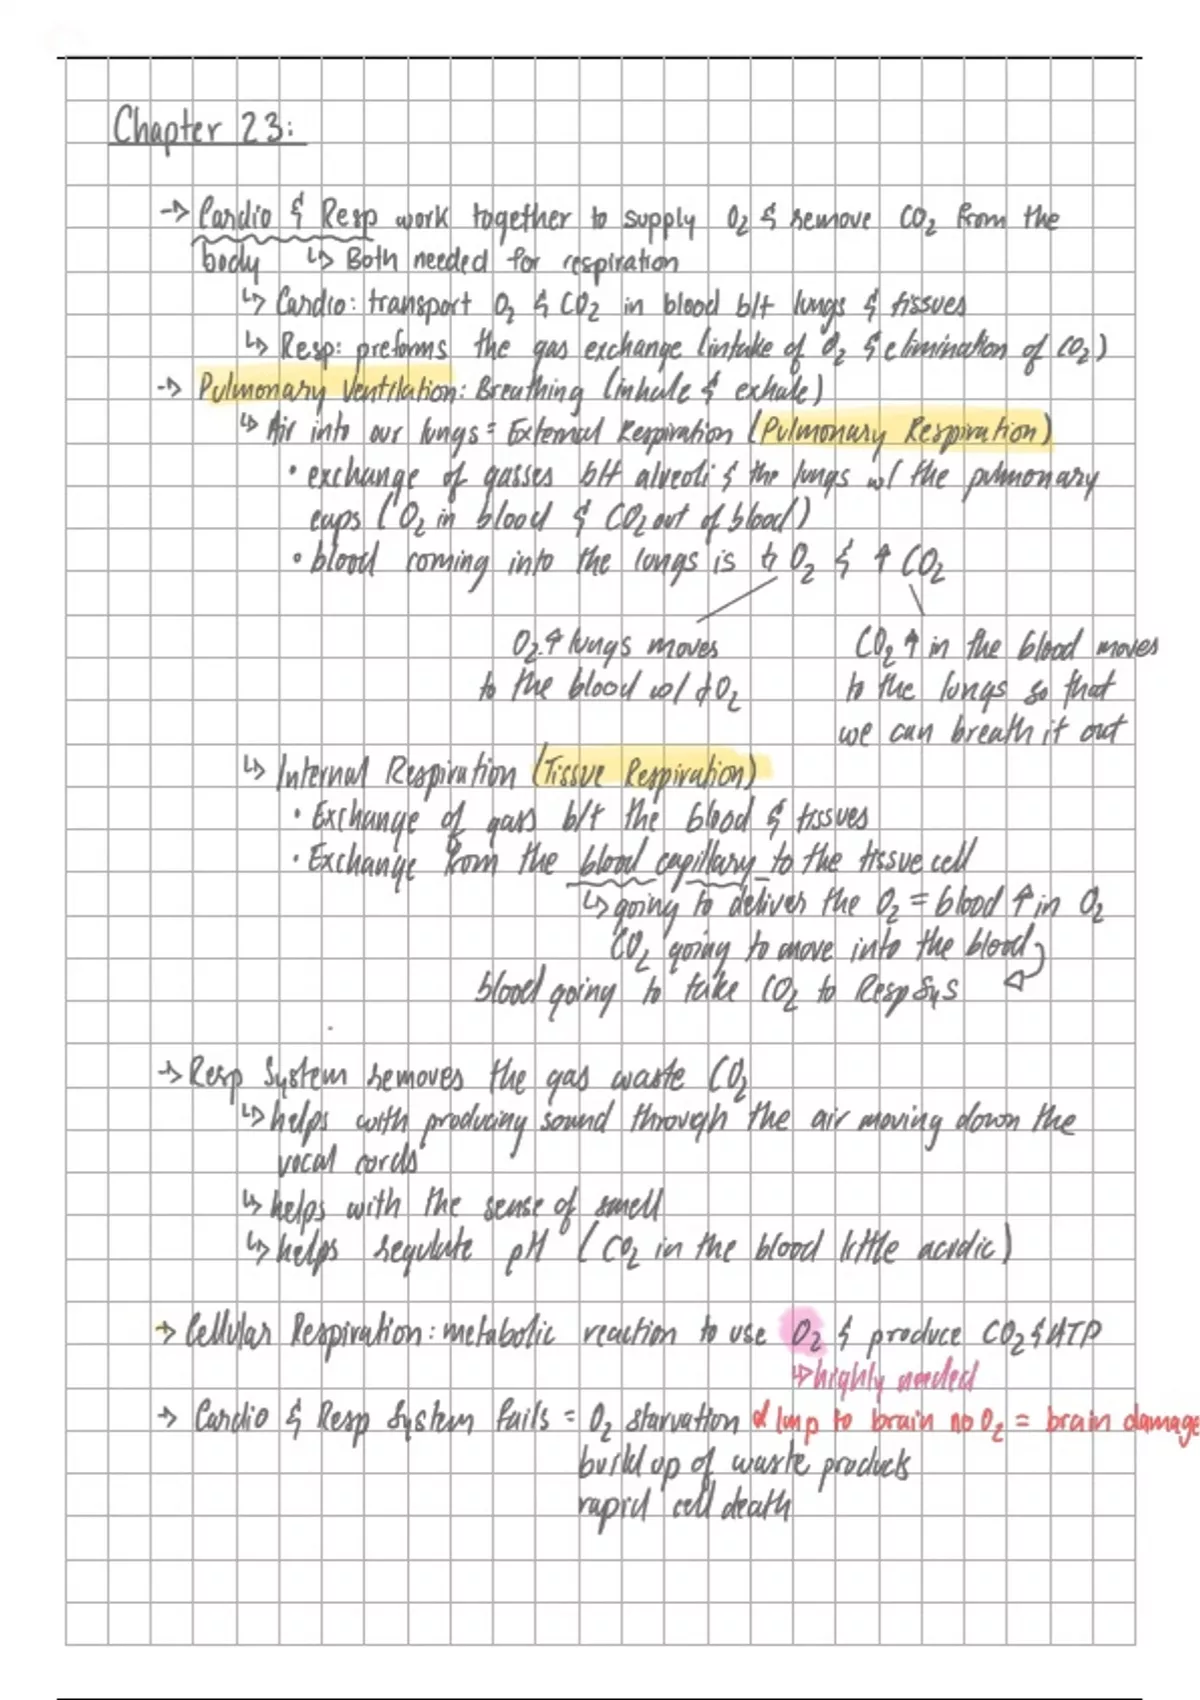 Chapter 23:
→ Cardio & Resp work together to supply O₂ & remove CO₂ from the
body ↳ Both needed for respiration
↳ Cardio: transport O₂ & CO₂ in blood b/t lungs & tissues
↳ Resp: preforms the gas exchange (intake of O₂ & elimination of CO₂)
→ Pulmonary Ventilation: Breathing (inhale & exhale)
↳ Air into our lungs = External Respiration (Pulmonary Respiration)
• exchange of gasses b/t alveoli & the lungs w/ the pulmonary
caps (O₂ in blood & CO₂ out of blood)
• blood coming into the lungs is ↓ O₂ & ↑ CO₂
O₂ ↑ lungs moves
to the blood w/ ↓ O₂
CO₂ ↑ in the blood moves
to the lungs so that
we can breath it out
↳ Internal Respiration (Tissue Respiration)
• Exchange of gass b/t the blood & tissues
• Exchange from the blood capillary to the tissue cell
↳ going to deliver the O₂ = blood ↑ in O₂
CO₂ going to move into the blood
blood going to take CO₂ to Resp Sys
→ Resp System removes the gas waste CO₂
↳ helps with producing sound through the air moving down the
vocal cords
↳ helps with the sense of smell
↳ helps regulate pH (CO₂ in the blood little acidic)
→ Cellular Respiration: metabolic reaction to use O₂ & produce CO₂ & ATP
↳ highly needed
→ Cardio & Resp System fails = O₂ starvation * Imp to brain no O₂ = brain damage
build up of waste products
rapid cell death